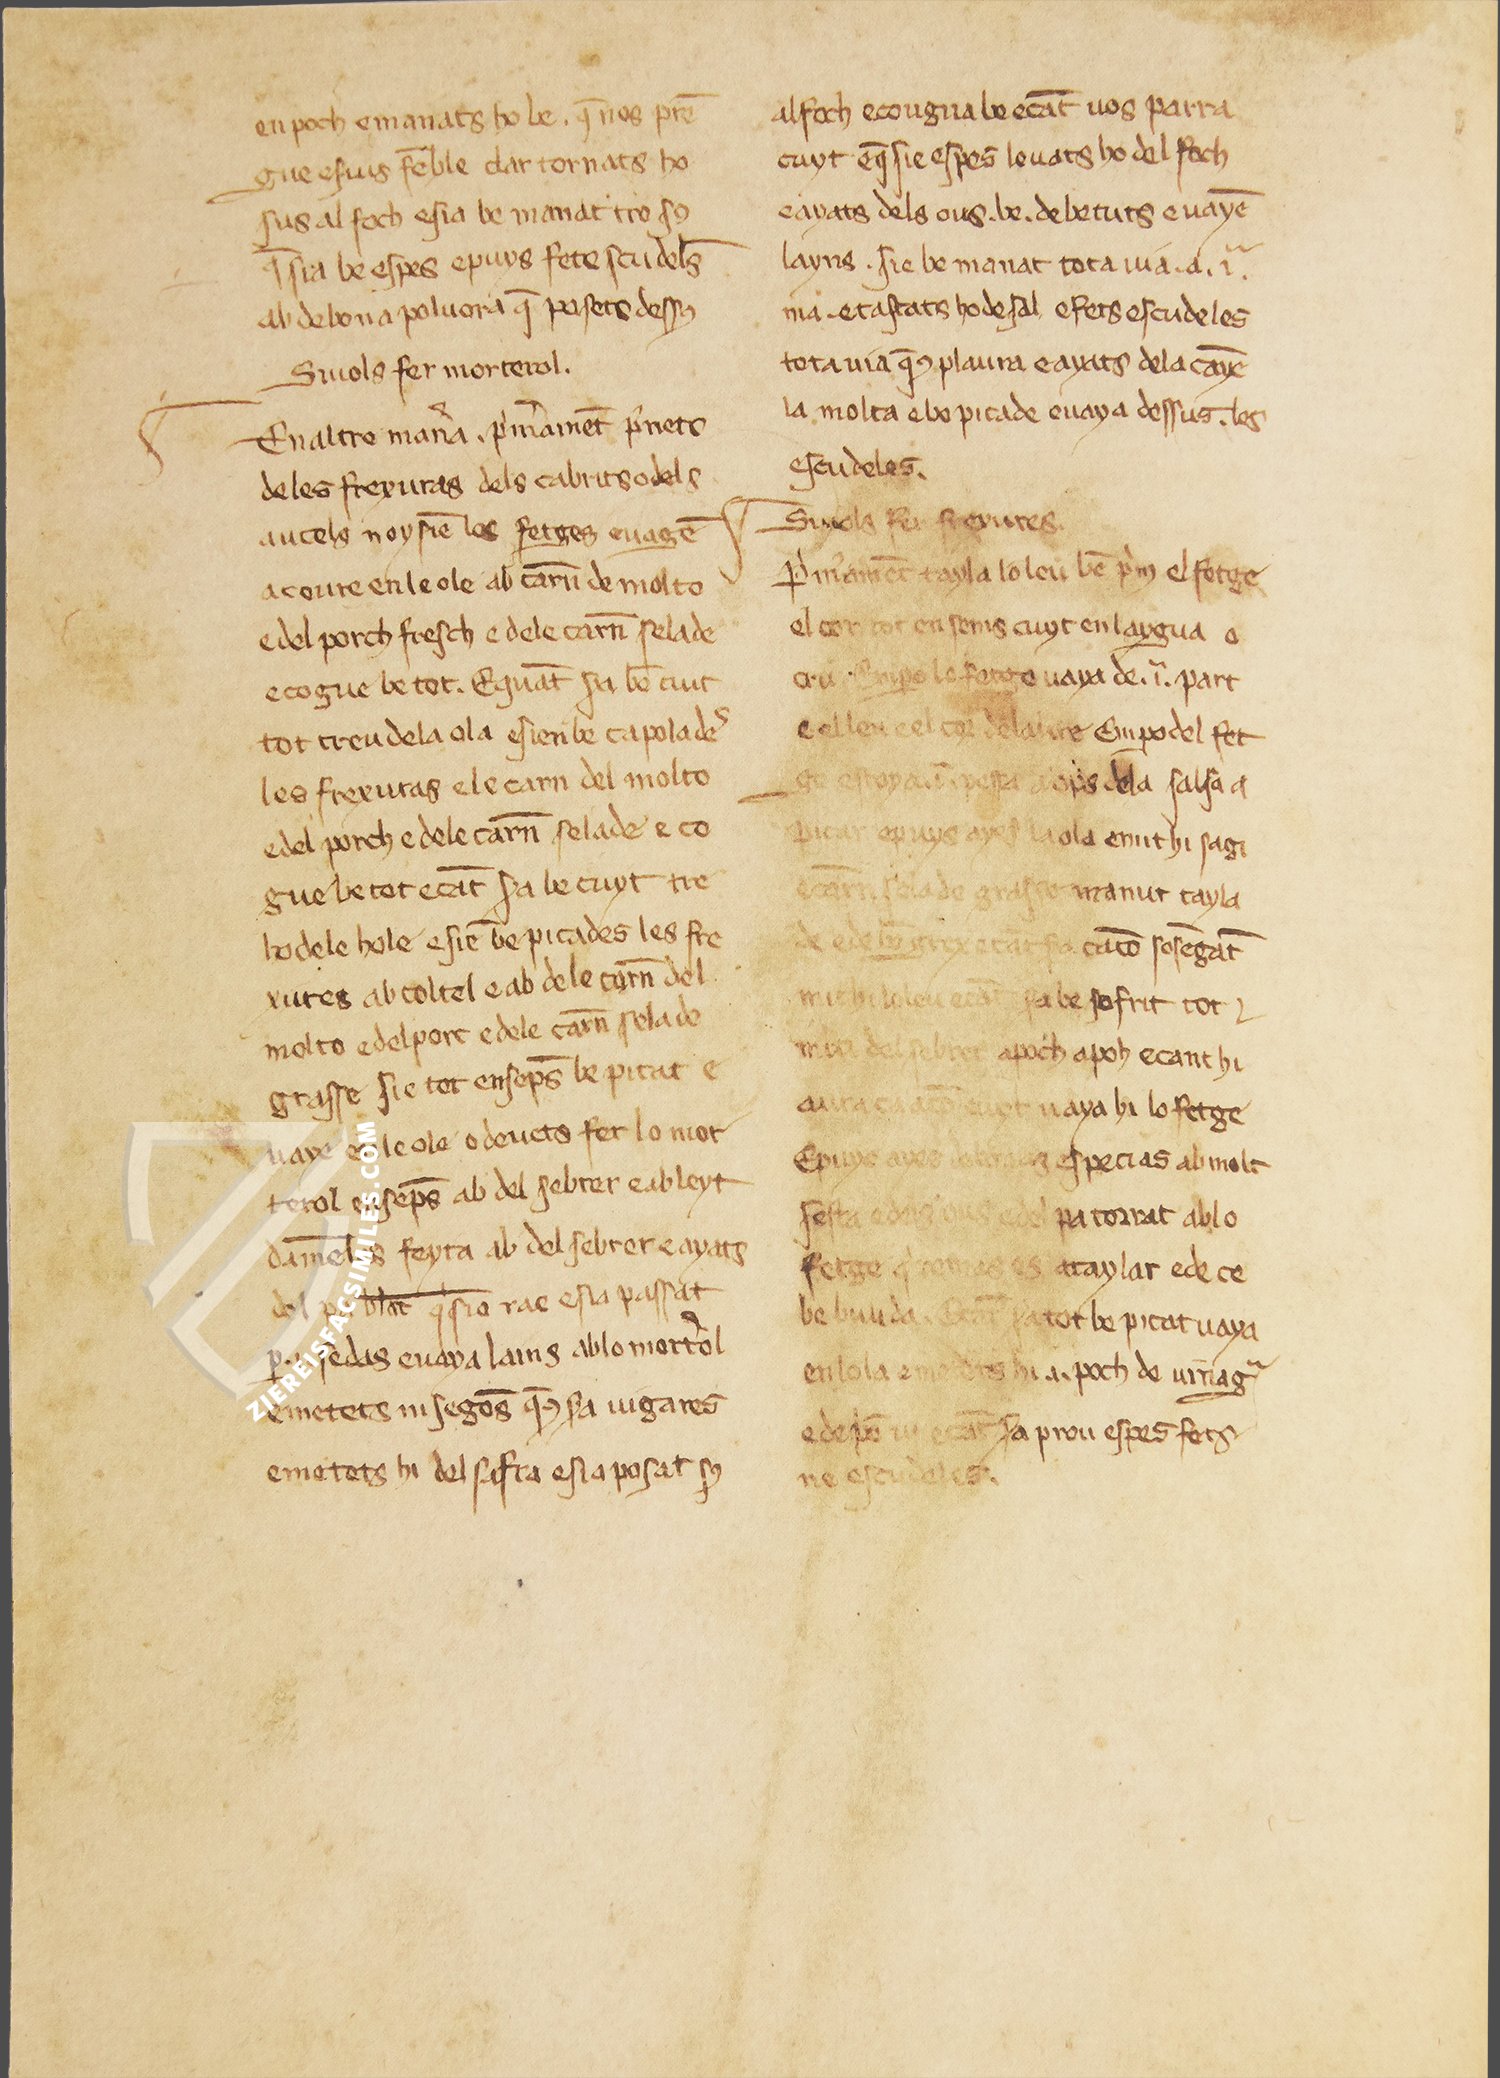 en poch e manats ho be . q̄ nos prē
gue e siuis sēble clar tornats ho
sus al foch e sia be manat tro sꝯ
q̄ sia be espes e puys fet escudels̄
ab de bona poluora q̄ posets dessꝯ
Siuols fer morterol.
En altre man̄a . p̄m̄amēt p̄nets
de les frexuras dels cabrits o dels
aucels noy siē los fetges e uagē
a coure en le ole ab carn̄ de molto
e del porch fresch e dele carn̄ selade
e cogue be tot. E quāt sia bē cuit
tot treu de la ola e sien be capolades
les frexuras e le carn del molto
e del porch e dele carn̄ selade e co
gue be tot e cāt sia be cuyt tre
ho dele hole e siē be picades les fre
xures ab coltel e ab dele carn̄ del
molto e del porc e dele carn̄ selade
grasse sie tot ensēps be picat e
uaye en le ole o deuets fer lo mor
terol ensēps ab del sebrer e ab leyt
damel̄es feyta ab del sebrer e ayats
del pa blāt q̄ sie rae e sia passat
p .i. sedas e uaya lains ab lo mort̄ol
e metets ni segōs q̄ꝯ sa uigares
e metets hi del safra e sia posat sꝯ
al foch e cougua be e cāt uos parra
cuyt e q̄ sie espes leuats ho del foch
e ayats dels ous . be . debetuts e uayē
layns . sie be manat tota uia . a . ı̄ .
ma . e tastats ho de sal e fets escudeles
tota uia q̄ꝯ plaura e ayats dela cāye
la molta e be picade e uaya dessus . les
escudeles.
Siuols fer frexures.
P̄m̄amēt tayla lo leu bē p̄m e l fetge
e l cor tot ensems cuyt en laygua o
cru . Empo lo fetge uaya de . ı̄ . part
e el leu e el cor delaltre Empo del fet
ge estoya . ı̄ . pessa a ops dela salsa a
picar e puys ayes la ola e mit hi sagi
e carn̄ selade grasse manut tayla
de e de grex e cāt sia cacō sosēgat
mit hi lo leu e cāt sia be sofrit tot
mita del sebrer a poch a poh e cant hi
aura cuyt uaya hi lo fetge
E puys ayes especias ab molt
safra e dels ous e del pa torrat ab lo
fetge q̄ romas es a taylar e de ce
be buuda . E cāt sia tot be picat uaya
en lola e metets hi . a . poch de uīnag̃
e de e cāt sia prou espes fets
ne escudeles.
ZIEREISFACSIMILES.COM